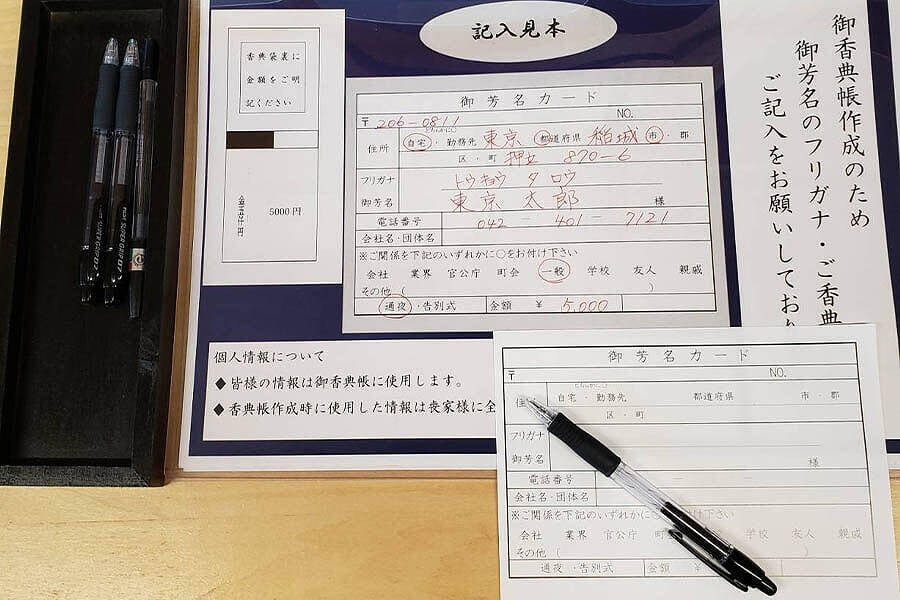 記入見本
香典袋裏に
金額をご明
記ください
金
5000円
円
御芳名カード
〒 206-0811 NO.
住所 自宅・勤務先 東京 都道府県 稲城 市・郡
区・町 押立 870-6
フリガナ トウキョウ タロウ
御芳名 東京 太郎 様
電話番号 042 - 401 - 7121
会社名・団体名
※ご関係を下記のいずれかに〇をお付け下さい
会社 業界 官公庁 町会 一般 学校 友人 親戚
その他 ( )
通夜・告別式 金額 ¥ 5,000
御香典帳作成のため
御芳名のフリガナ・ご香典
ご記入をお願いしており
個人情報について
◆皆様の情報は御香典帳に使用します。
◆香典帳作成時に使用した情報は喪家様に全
御芳名カード
〒 NO.
住 自宅・勤務先 都道府県 市・郡
区・町
フリガナ
御芳名 様
電話番号 - -
会社名・団体名
※ご関係を下記のいずれかに お付け下さい
会社 業界 官公庁 町会 学校 友人 親戚
その他 (
通夜・告別式 金額 ¥
PILOT SUPER GRIP 0.7